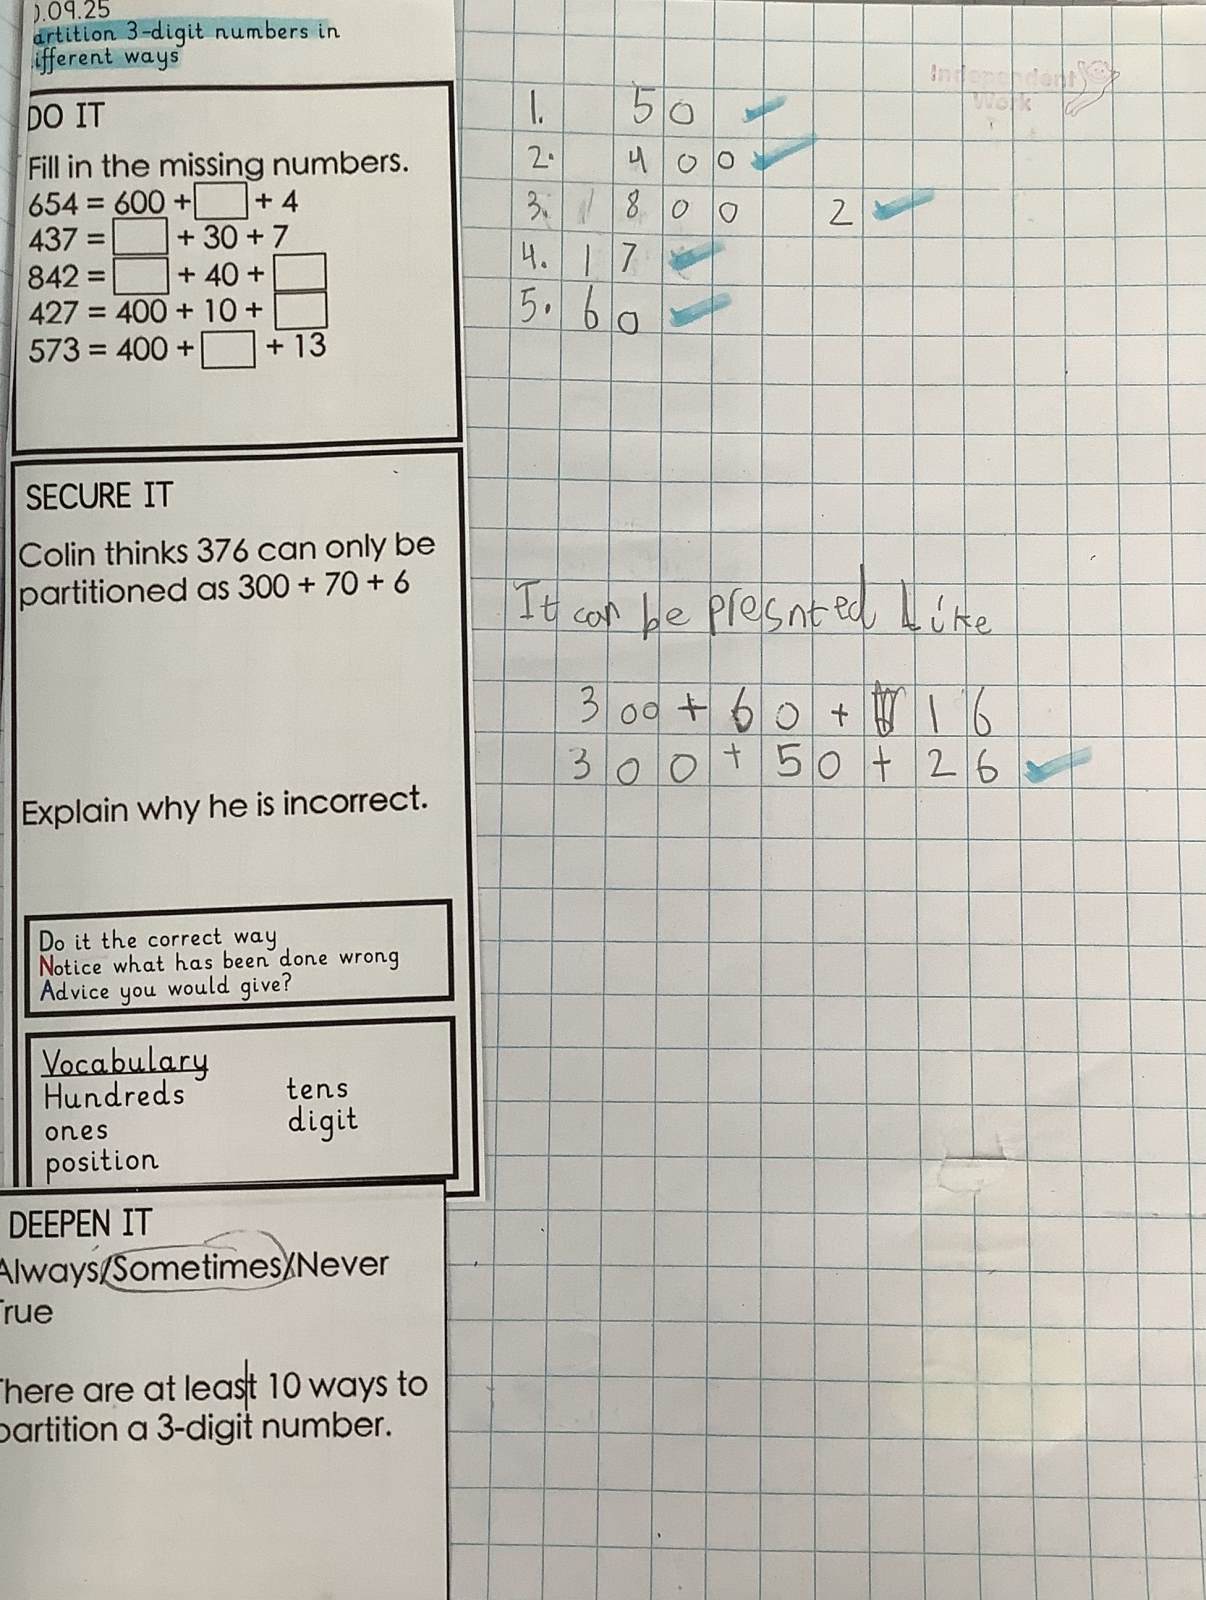 ).09.25
artition 3-digit numbers in
ifferent ways
DO IT
Fill in the missing numbers.
654 = 600 + + 4
437 = + 30 + 7
842 = + 40 +
427 = 400 + 10 +
573 = 400 + + 13
SECURE IT
Colin thinks 376 can only be
partitioned as 300 + 70 + 6
Explain why he is incorrect.
Do it the correct way
Notice what has been done wrong
Advice you would give?
Vocabulary
Hundreds tens
ones digit
position
DEEPEN IT
Always/Sometimes/Never
True
There are at least 10 ways to
partition a 3-digit number.
Independent
Work
1. 50
2. 400
3. 800 2
4. 17
5. 60
It can be presnted Like
300 + 60 + 16
300 + 50 + 26